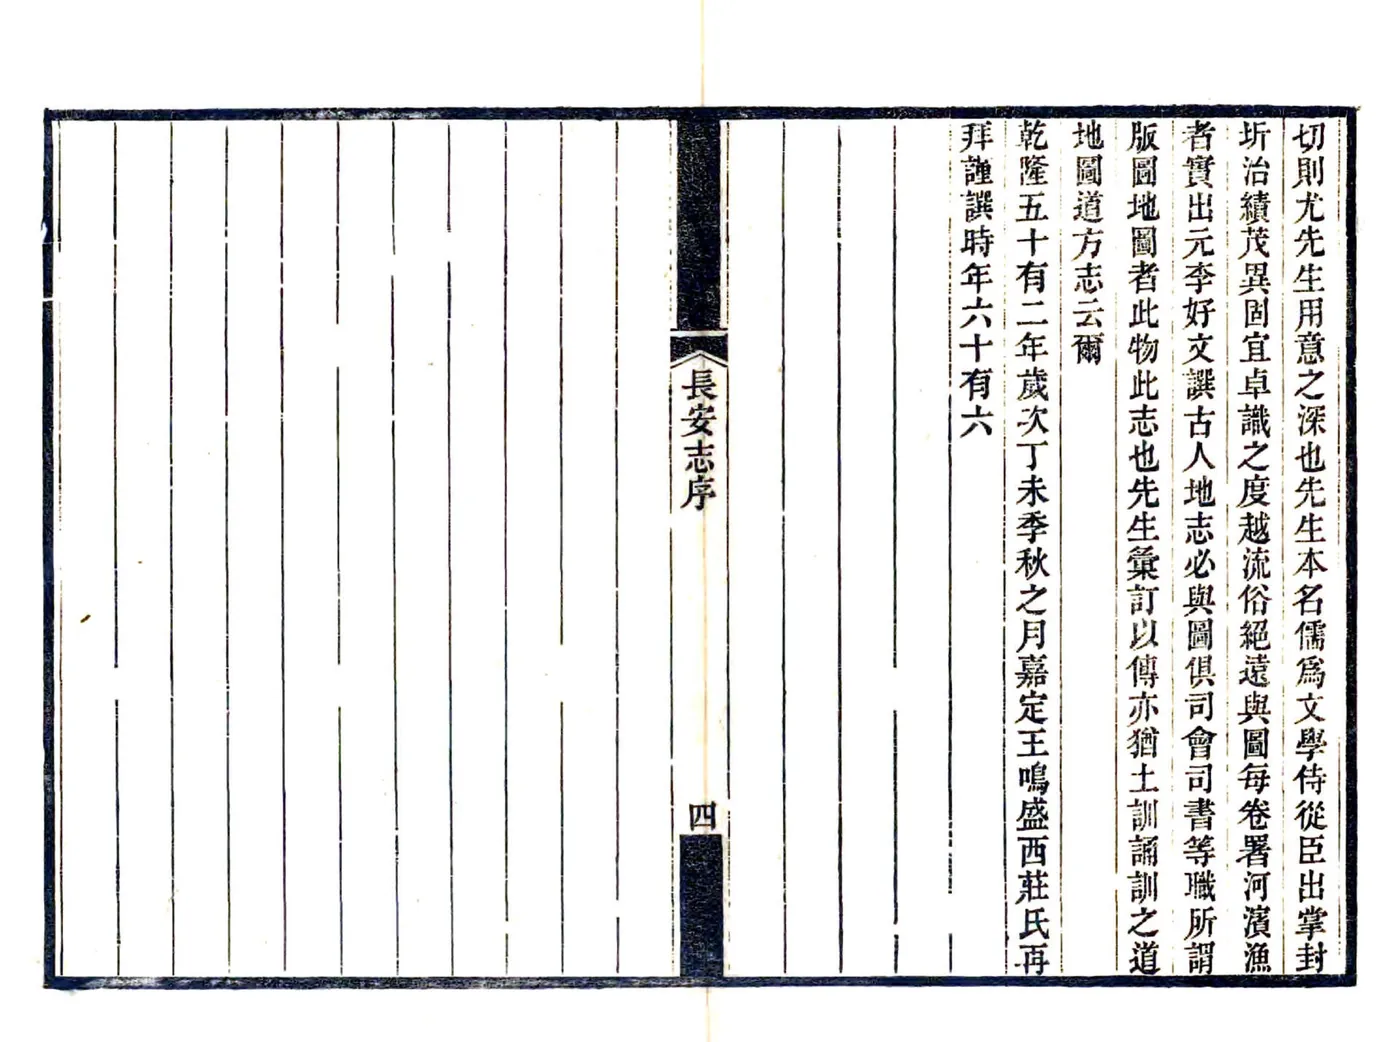 切則尤先生用意之深也先生本名儒爲文學侍從臣出掌封
圻治績茂異固宜卓識之度越流俗絕遠與圖每卷署河濱漁
者實出元李好文譔古人地志必與圖俱司會司書等職所謂
版圖地圖者此物此志也先生彙訂以傳亦猶土訓誦訓之道
地圖道方志云爾
乾隆五十有二年歲次丁未季秋之月嘉定王鳴盛西莊氏再
拜謹譔時年六十有六
長安志序
四